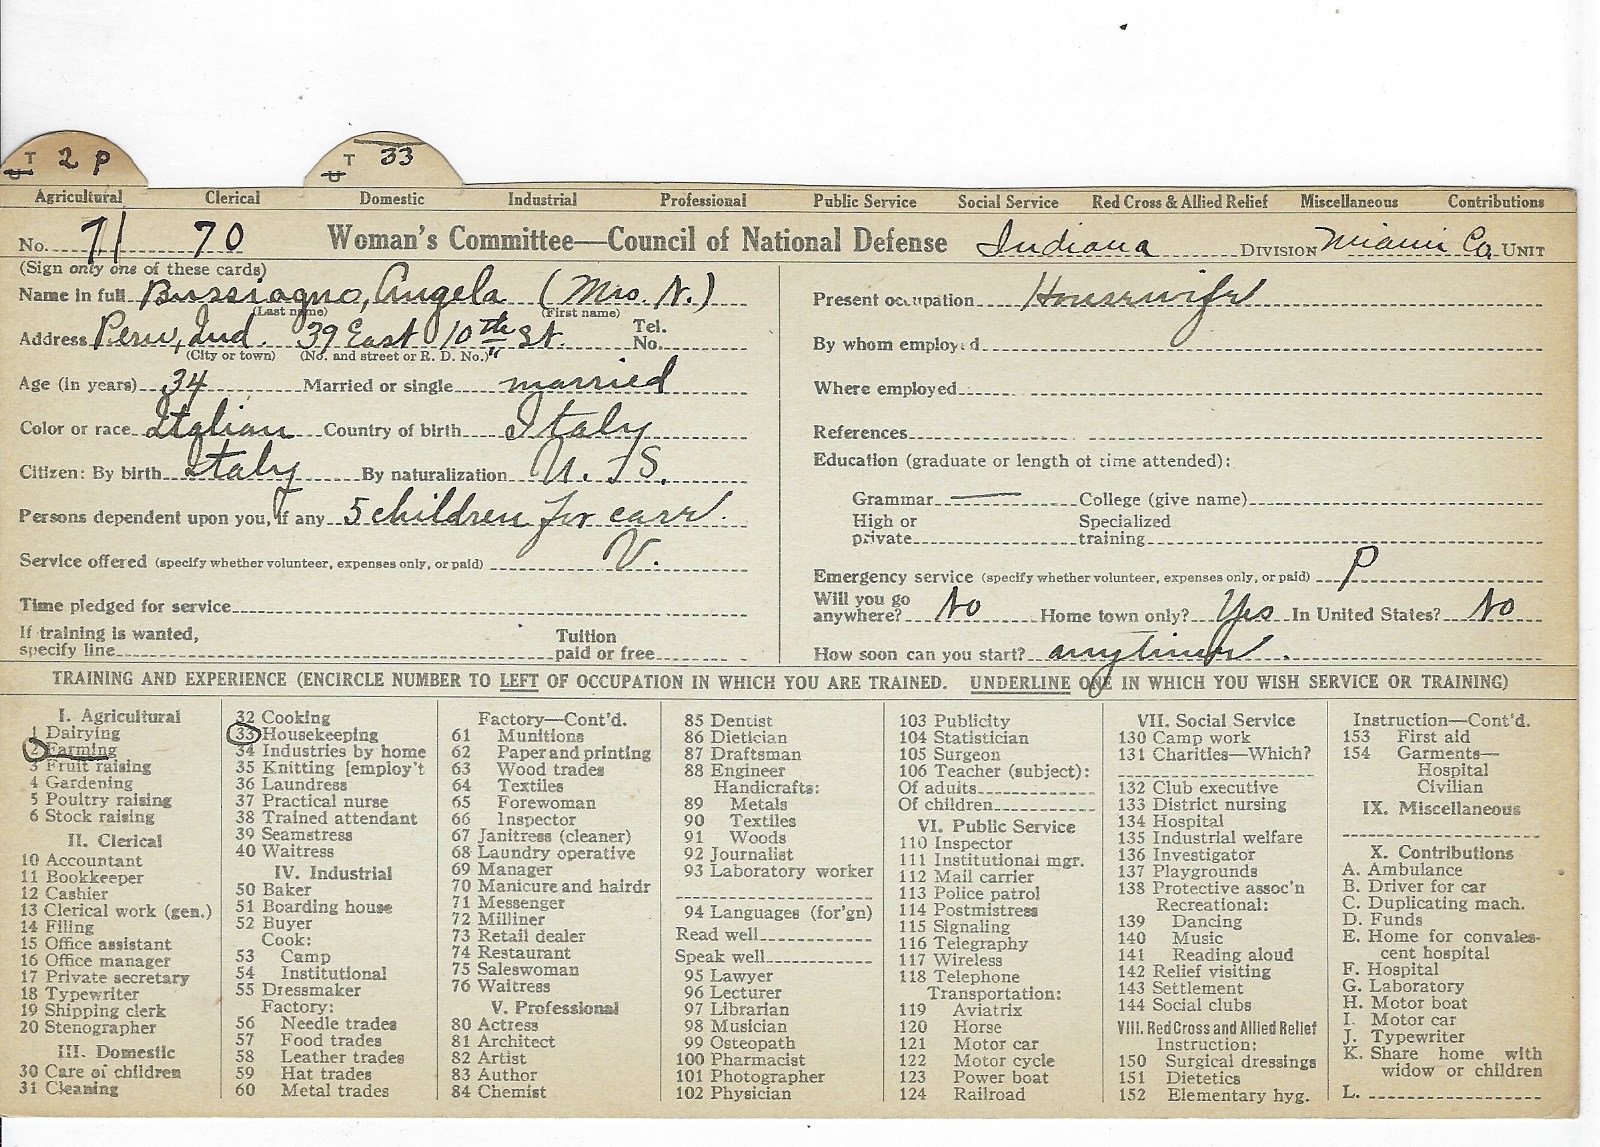 T 2 P T 33
U U
Agricultural Clerical Domestic Industrial Professional Public Service Social Service Red Cross & Allied Relief Miscellaneous Contributions
No. 71 70 Woman's Committee—Council of National Defense Indiana DIVISION Miami Co. UNIT
(Sign only one of these cards)
Name in full Bussiagno, Angela (Mrs. N.)
(Last name) (First name)
Address Peru, Ind. 39 East 10th St. Tel. No.
(City or town) (No. and street or R. D. No.)
Age (in years) 34 Married or single married
Color or race Italian Country of birth Italy
Citizen: By birth Italy By naturalization U. S.
Persons dependent upon you, if any 5 children for care
Service offered (specify whether volunteer, expenses only, or paid) V.
Time pledged for service
If training is wanted, specify line Tuition paid or free
Present occupation Housewife
By whom employed
Where employed
References
Education (graduate or length of time attended):
Grammar — College (give name)
High or private Specialized training
Emergency service (specify whether volunteer, expenses only, or paid) P
Will you go anywhere? No Home town only? Yes In United States? No
How soon can you start? anytime.
TRAINING AND EXPERIENCE (ENCIRCLE NUMBER TO LEFT OF OCCUPATION IN WHICH YOU ARE TRAINED. UNDERLINE ONE IN WHICH YOU WISH SERVICE OR TRAINING)
I. Agricultural
1 Dairying
2 Farming
3 Fruit raising
4 Gardening
5 Poultry raising
6 Stock raising
II. Clerical
10 Accountant
11 Bookkeeper
12 Cashier
13 Clerical work (gen.)
14 Filing
15 Office assistant
16 Office manager
17 Private secretary
18 Typewriter
19 Shipping clerk
20 Stenographer
III. Domestic
30 Care of children
31 Cleaning
32 Cooking
33 Housekeeping
34 Industries by home
35 Knitting [employ't
36 Laundress
37 Practical nurse
38 Trained attendant
39 Seamstress
40 Waitress
IV. Industrial
50 Baker
51 Boarding house
52 Buyer
Cook:
53 Camp
54 Institutional
55 Dressmaker
Factory:
56 Needle trades
57 Food trades
58 Leather trades
59 Hat trades
60 Metal trades
Factory—Cont'd.
61 Munitions
62 Paper and printing
63 Wood trades
64 Textiles
65 Forewoman
66 Inspector
67 Janitress (cleaner)
68 Laundry operative
69 Manager
70 Manicure and hairdr
71 Messenger
72 Milliner
73 Retail dealer
74 Restaurant
75 Saleswoman
76 Waitress
V. Professional
80 Actress
81 Architect
82 Artist
83 Author
84 Chemist
85 Dentist
86 Dietician
87 Draftsman
88 Engineer
Handicrafts:
89 Metals
90 Textiles
91 Woods
92 Journalist
93 Laboratory worker
94 Languages (for'gn)
Read well
Speak well
95 Lawyer
96 Lecturer
97 Librarian
98 Musician
99 Osteopath
100 Pharmacist
101 Photographer
102 Physician
103 Publicity
104 Statistician
105 Surgeon
106 Teacher (subject):
Of adults
Of children
VI. Public Service
110 Inspector
111 Institutional mgr.
112 Mail carrier
113 Police patrol
114 Postmistress
115 Signaling
116 Telegraphy
117 Wireless
118 Telephone
Transportation:
119 Aviatrix
120 Horse
121 Motor car
122 Motor cycle
123 Power boat
124 Railroad
VII. Social Service
130 Camp work
131 Charities—Which?
132 Club executive
133 District nursing
134 Hospital
135 Industrial welfare
136 Investigator
137 Playgrounds
138 Protective assoc'n
Recreational:
139 Dancing
140 Music
141 Reading aloud
142 Relief visiting
143 Settlement
144 Social clubs
VIII. Red Cross and Allied Relief
Instruction:
150 Surgical dressings
151 Dietetics
152 Elementary hyg.
Instruction—Cont'd.
153 First aid
154 Garments—
Hospital
Civilian
IX. Miscellaneous
X. Contributions
A. Ambulance
B. Driver for car
C. Duplicating mach.
D. Funds
E. Home for convales-
cent hospital
F. Hospital
G. Laboratory
H. Motor boat
I. Motor car
J. Typewriter
K. Share home with
widow or children
L.